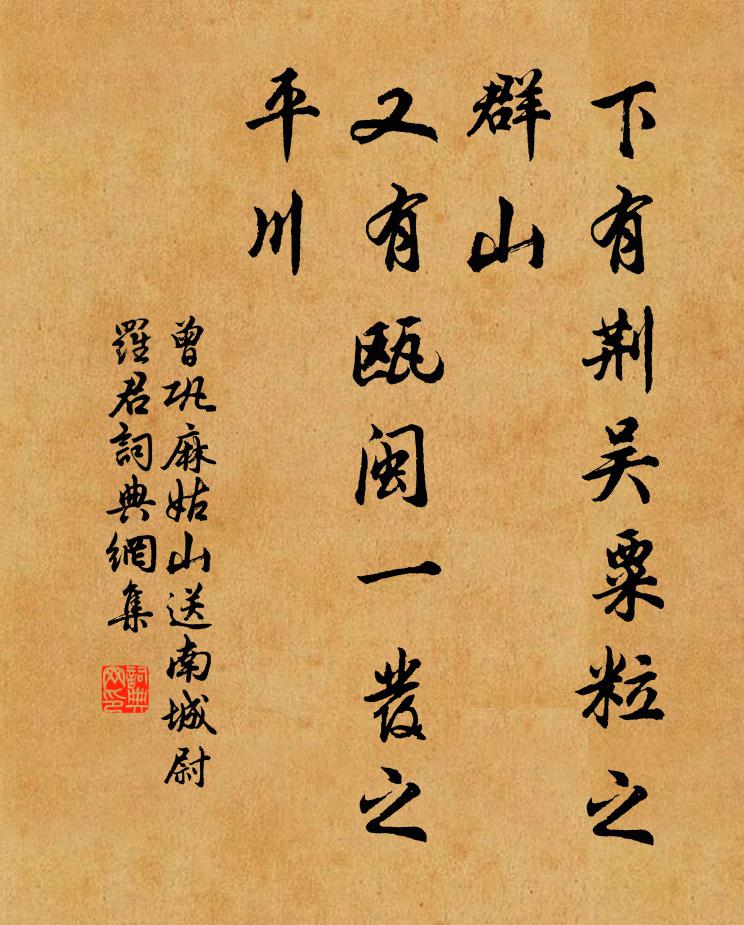 下有荆吴粟粒之
群山
又有瓯闽一發之
平川
曾巩麻姑山送南城尉
羅君詞典網集
詞典
网印